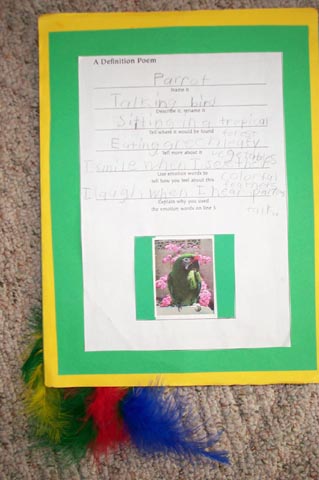 A Definition Poem
Parrot
Name it
Talking bird
Describe it, rename it
Sitting in a tropical
forest
Tell where it would be found
Eating green leafy
vegetables
Tell more about it
I smile when I see
colorful
feathers
Use emotion words to
tell how you feel about this
I laugh when I hear parrots
talk.
Explain why you used
the emotion words on line 5